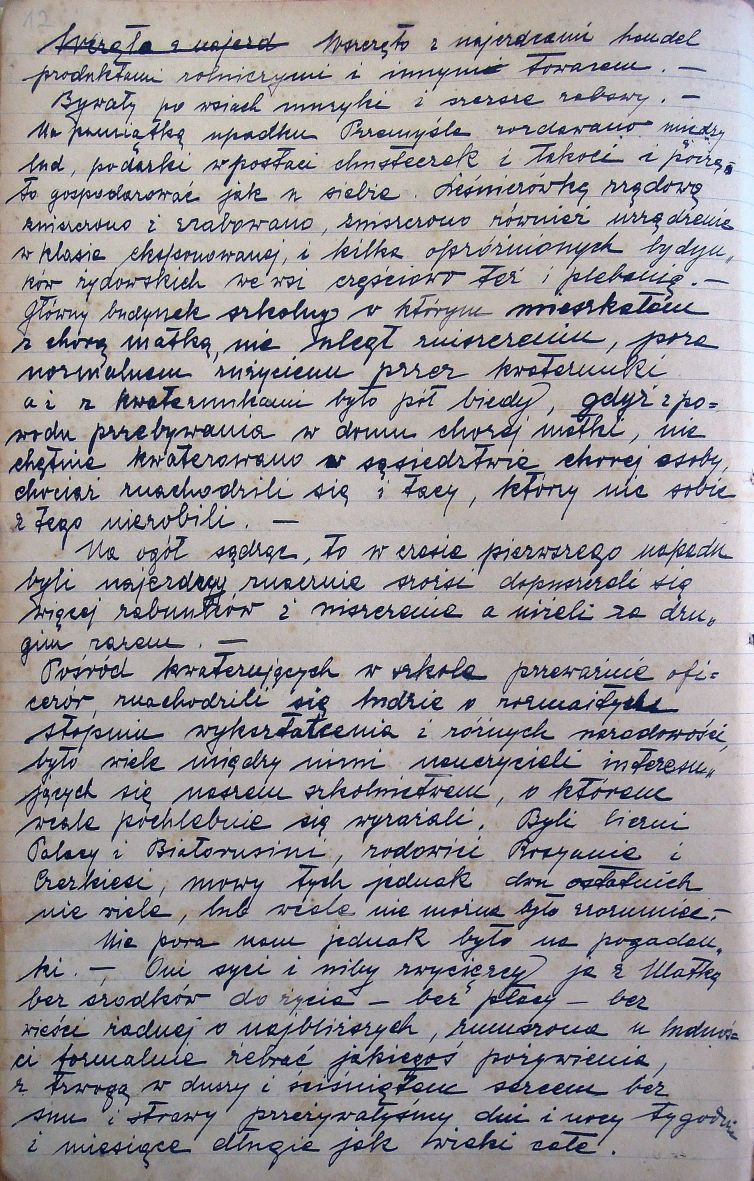 12
Wszczęto z najezdcami handel
produktami rolniczymi i innymi towarem. —
Bywały po wsiach muzyki i szersze zabawy. —
Na pamiątkę upadku Przemyśla rozdawano między
lud, podarki w postaci chusteczek i łakoci i poczę„
to gospodarować jak u siebie. Leśniczówkę rządową
zniszczono i zrabowano, zniszczono również urządzenie
w klasie eksponowanej, i kilka opróżnionych budyn„
ków żydowskich we wsi częściowo też i plebanię. —
Główny budynek szkolny w którym mieszkałam
z chorą matką, nie uległ zniszczeniu, poza
normalnem zużyciem przez kwaterunki
a i z kwaterunkami było pół biedy, gdyż z po=
wodu przebywania w domu chorej matki, nie
chętnie kwaterowano w sąsiedztwie chorej osoby,
chociaż znachodzili się i tacy, którzy nic sobie
z tego nierobili. —
Na ogół sądząc, to w czasie pierwszego napadu
byli najezdzcy znacznie srożsi dopuszczali się
więcej rabunków i niszczenia a niżeli za dru„
gim razem. —
Pośród kwaterujących w szkole przeważnie ofi=
cerów, znachodzili się ludzie o rozmaitych
stopniu wykształcenia i różnych narodowości,
było wiele między nimi nauczycieli interesu„
jących się naszem szkolnictwem, o którem
wcale pochlebnie się wyrażali. Byli liczni
Polacy i Białorusini, rodowici Rosyanie i
Czerkiesi, mowy tych jednak dwu ostatnich
nie wiele, lub wcale nie można było zrozumieć. —
Nie pora nam jednak było na pogadan„
ki. —, Oni syci i niby zwycięzcy, ja z Matką
bez środków do życia — bez płacy — bez
wieści żadnej o najbliższych, zmuszona u ludnoś=
ci formalnie żebrać jakiegoś pożywienia,
z trwogą w duszy i ściśniętem sercem bez
snu i strawy przeżywałyśmy dni i nocy tygodnie
i miesiące długie jak wieki całe.